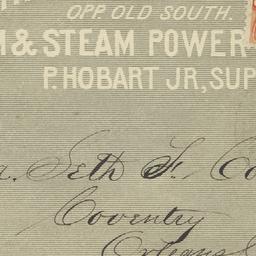 OPP. OLD SOUTH.
& STEAM POWER
P. HOBART JR, SUP
Seth F. Co
Coventry
Orleans